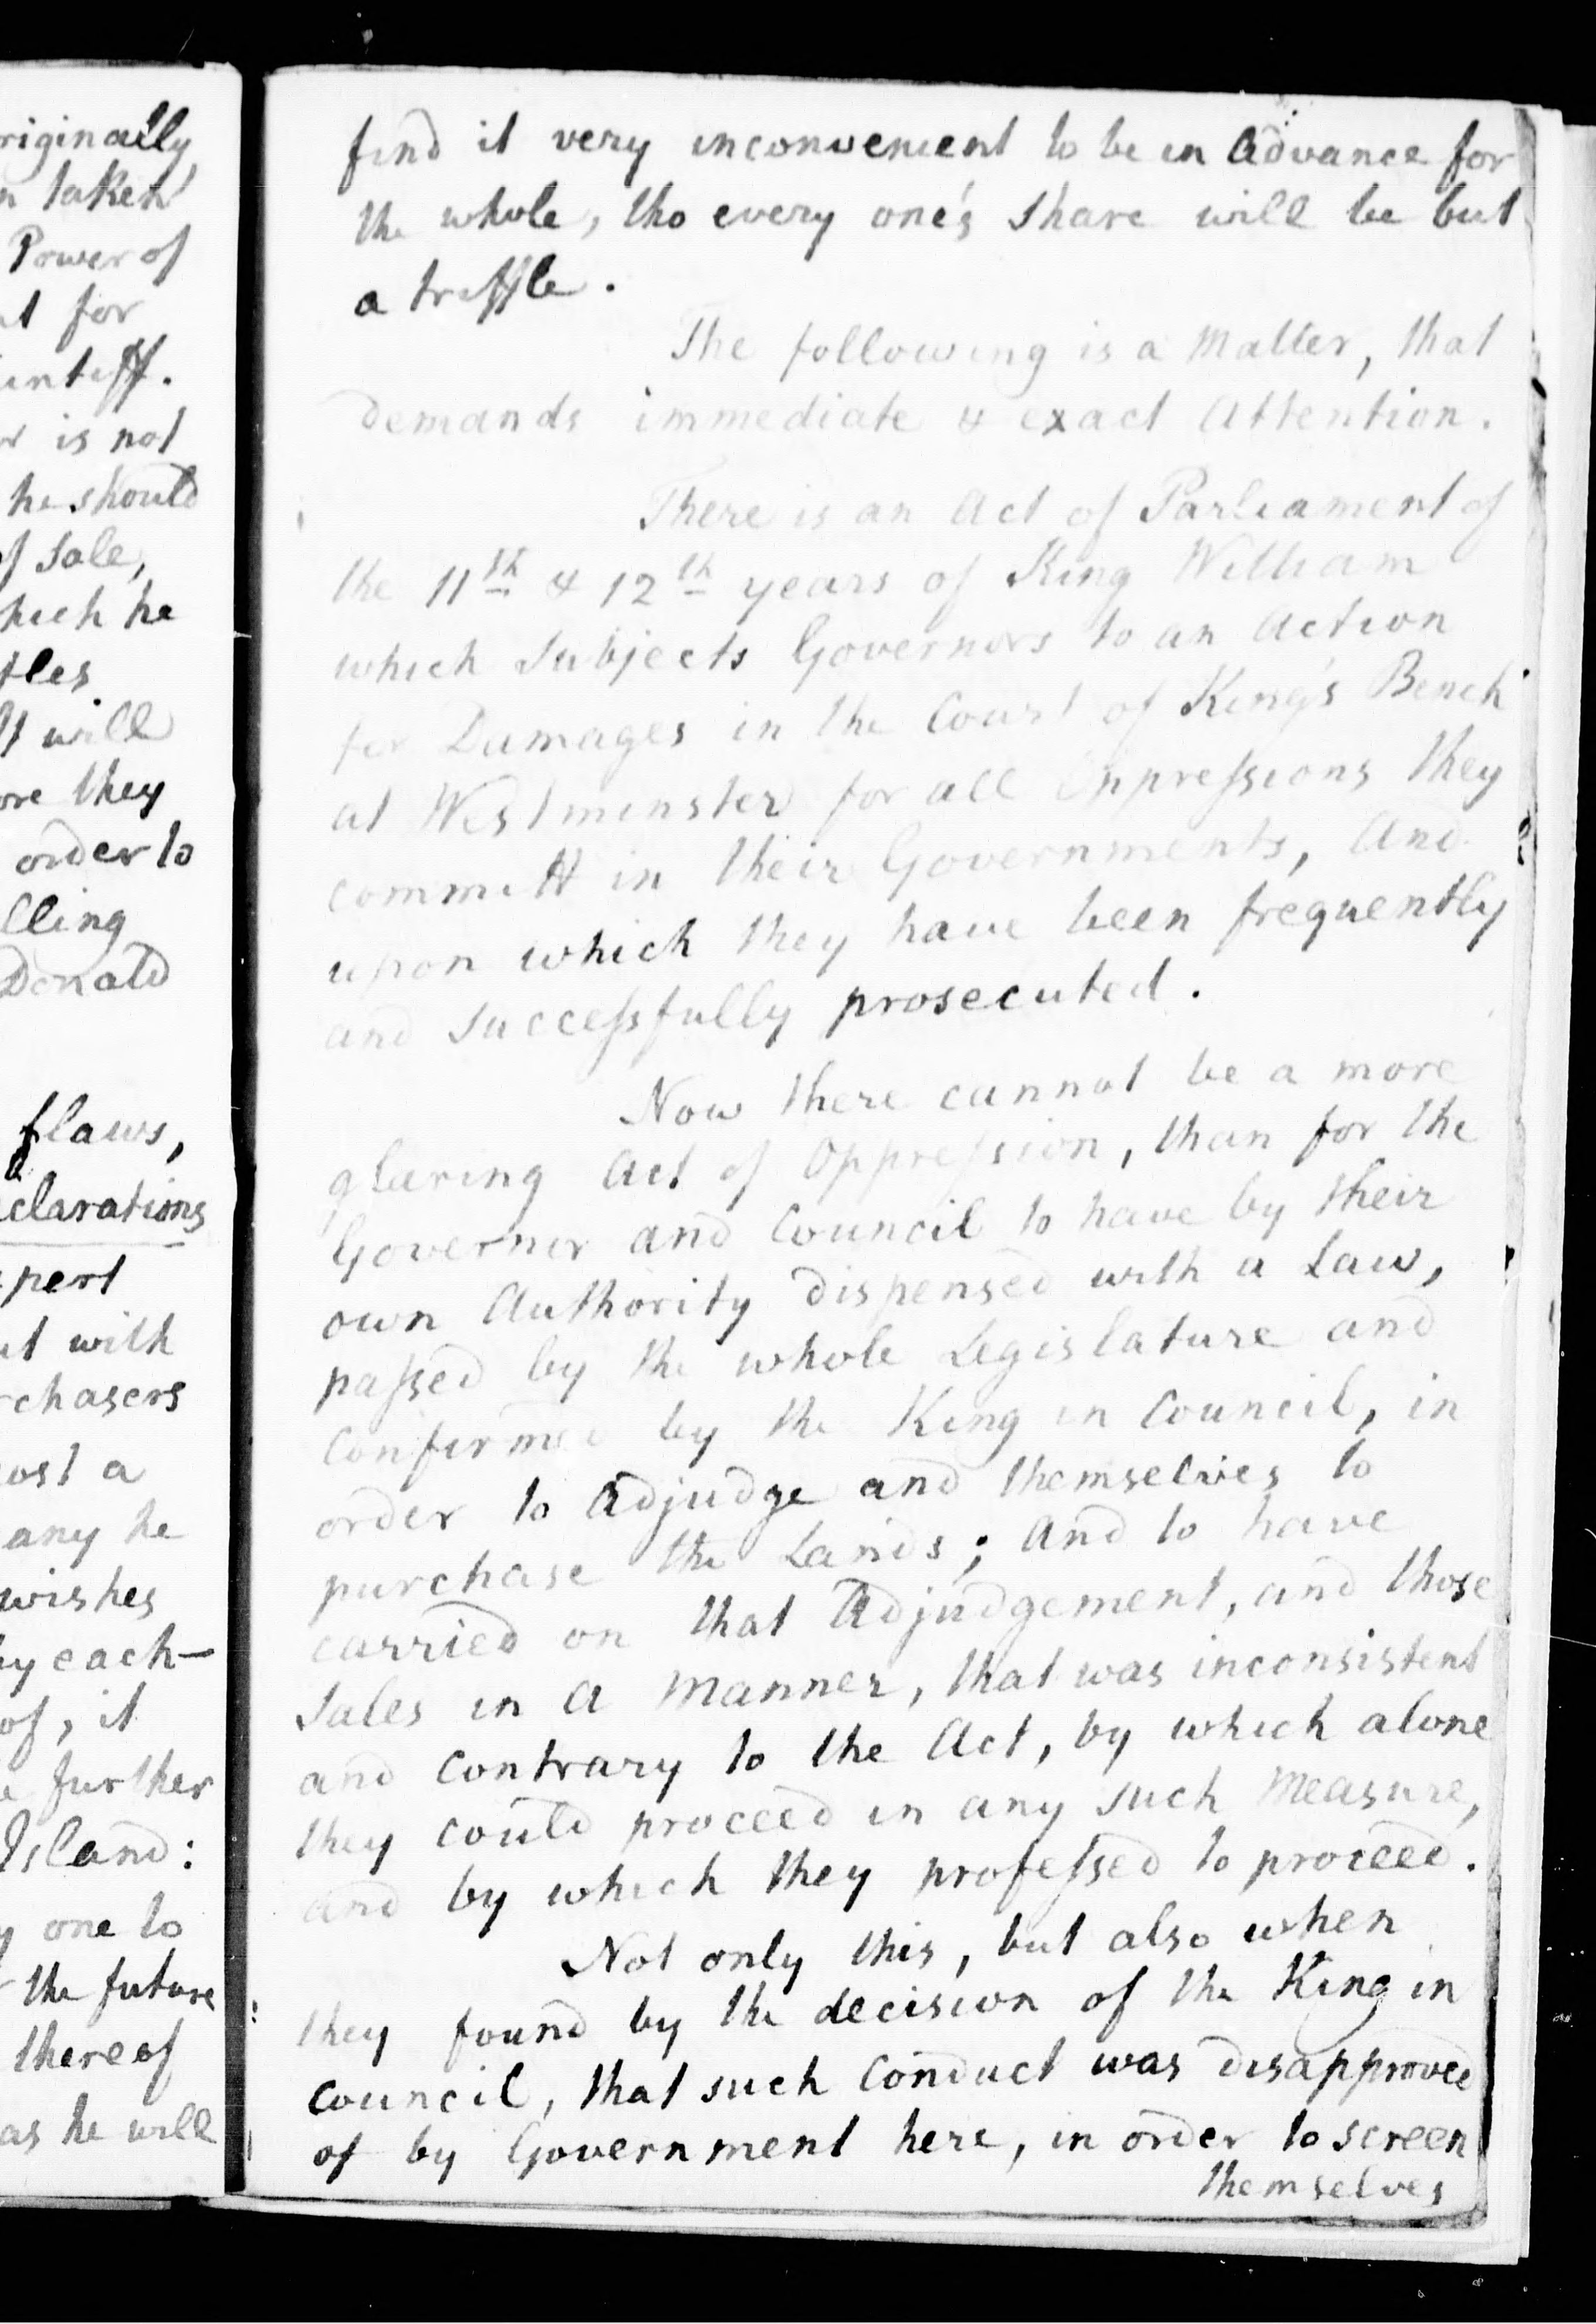 riginally
n taken
Power of
t for
intiff.
r is not
he should
of Sale,
hich he
tles
It will
ore they
order to
lling
Donald
flaws,
eclarations
xpert
ut with
rchasers
ost a
any he
wishes
by each
of, it
e further
Island:
y one to
the future
thereof
as he will
find it very inconvenient to be in Advance for
the whole, tho every one's share will be but
a triffle.
The following is a Matter, that
demands immediate & exact Attention.
There is an Act of Parliament of
the 11th & 12th years of King William
which Subjects Governors to an Action
for Damages in the Court of King's Bench
at Westminster for all Oppressions they
committ in their Governments, And
upon which they have been frequently
and Successfully prosecuted.
Now there cannot be a more
glaring Act of Oppression, than for the
Governor and Council to have by their
own Authority dispensed with a Law,
passed by the whole Legislature and
Confirmed by the King in Council, in
order to Adjudge and themselves to
purchase the Lands; And to have
carried on that Adjudgement, and those
Sales in a Manner, that was inconsistent
and Contrary to the Act, by which alone
they could proceed in any such Measure,
and by which they professed to proceed.
Not only this, but also when
they found by the decision of the King in
Council, that such Conduct was disapproved
of by Government here, in order to screen
themselves